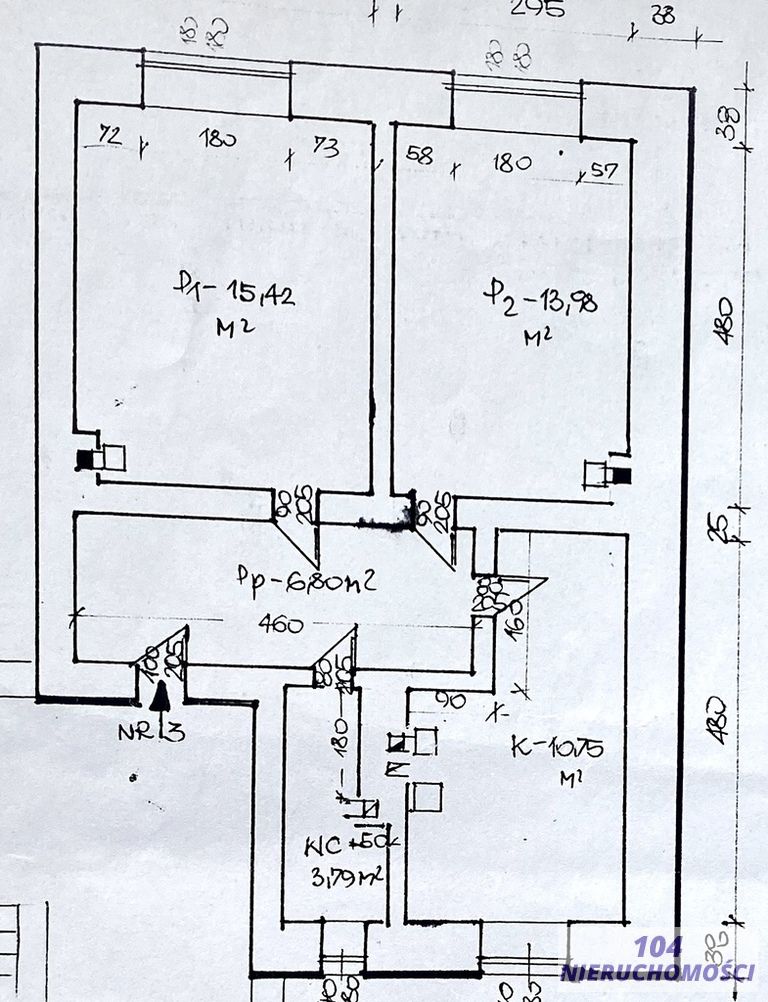 295
38
180
180
180
180
72
180
73
58
180
57
38
P1-15,42
M²
P2-13,98
M²
480
90
205
90
205
25
Pp-6,80m²
460
160
100
205
80
205
90
NR 3
180
K-10,75
M²
480
WC
50
3,79m²
38
104
NIERUCHOMOŚCI